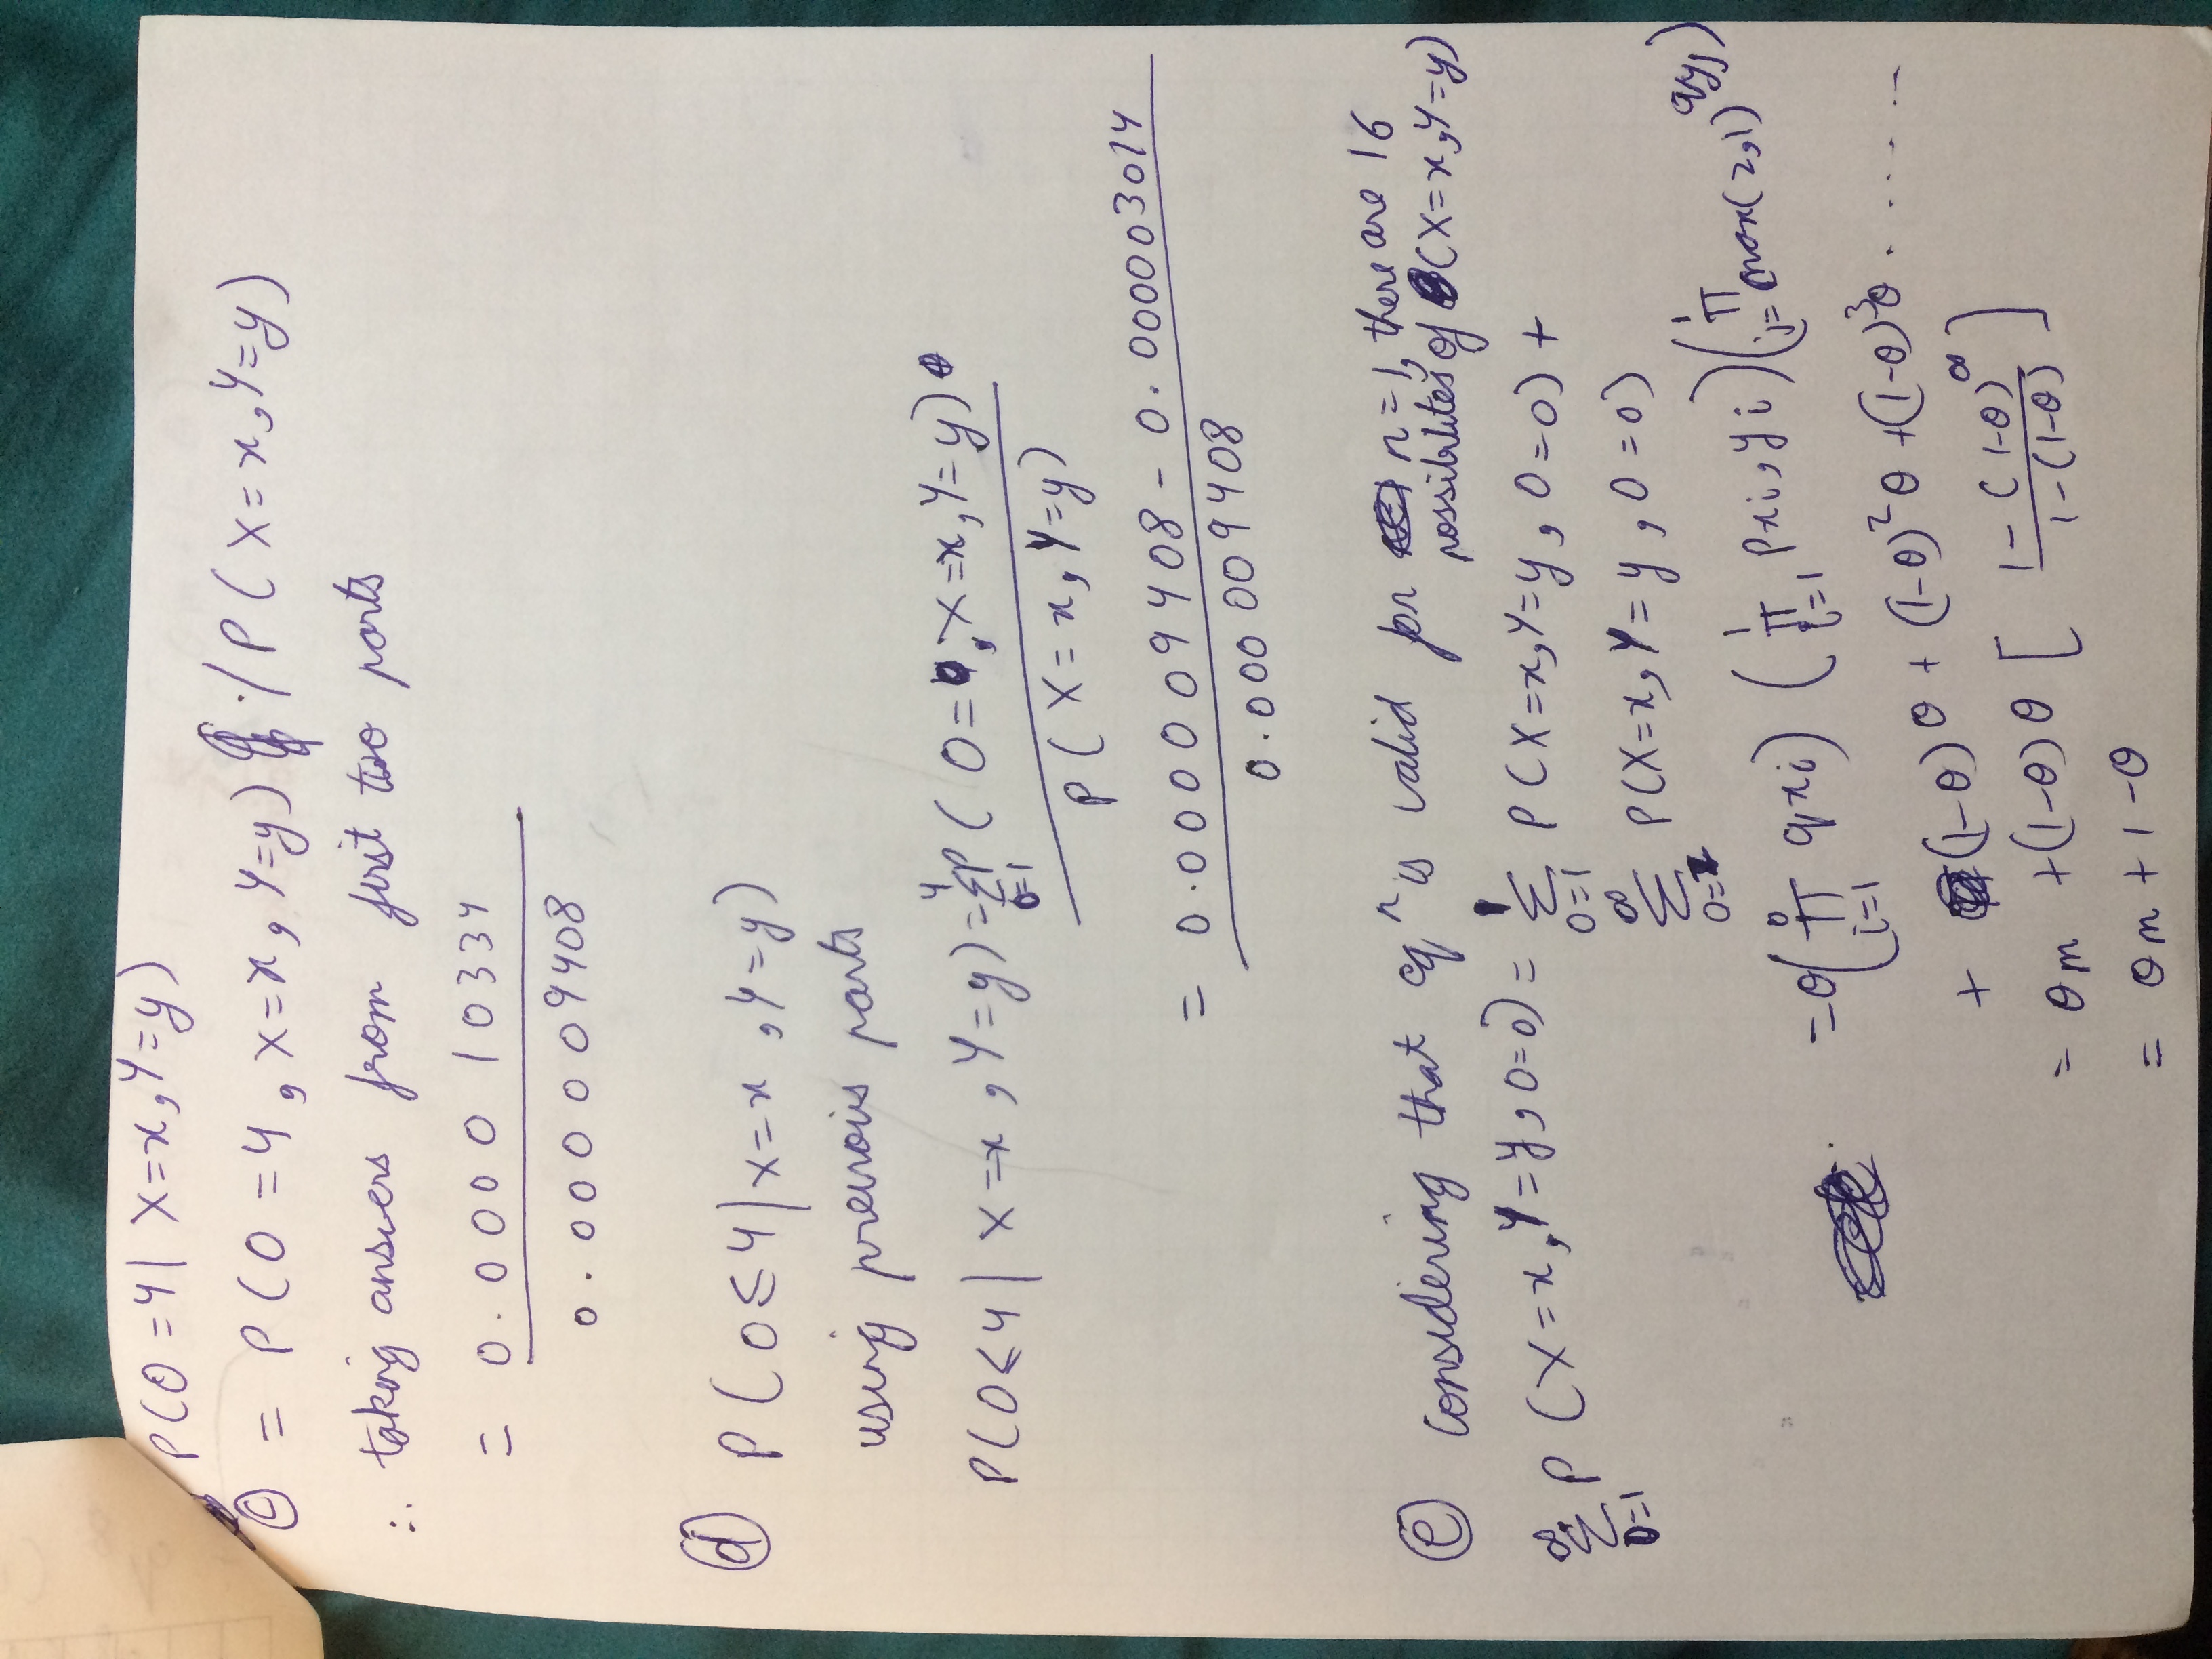 P(O=4| X=x, Y=y)
ⓒ = P(O=4, X=x, Y=y) ./P(X=x, Y=y)
∴ taking answers from first two parts
= 0.0000 10334
0.000009408
ⓓ P(O≤4|X=x, Y=y)
using previous parts
P(O≤4| X=x, Y=y) = 4Σo=1 P(O=o, X=x, Y=y)
P(X=x, Y=y)
= 0.000009408 - 0.000003014
0.000009408
ⓔ considering that eqⁿ is valid for n=1, there are 16
possibilites of (X=x, Y=y)
∞Σo=1 P(X=x, Y=y, O=o) = 1Σo=1 P(X=x, Y=y, O=o) +
∞Σo=2 P(X=x, Y=y, O=o)
= θ(0Πi=1 qxi) (1Πi=1 pxi,yi) (1Πj=max(2,1) qyj)
+ (1-θ)θ + (1-θ)²θ + (1-θ)³θ ......
= θm + (1-θ)θ [ 1-(1-θ)^∞ / 1-(1-θ) ]
= θm + 1-θ